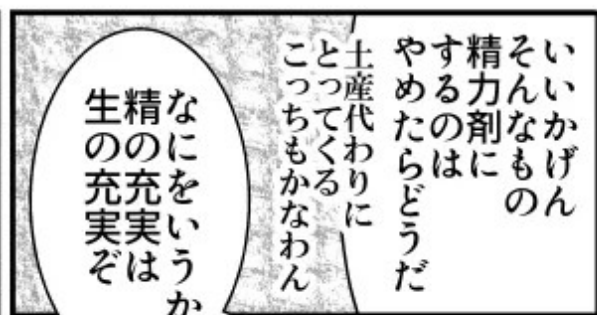 いいかげん
そんなもの
精力剤に
するのは
やめたらどうだ
土産代わりに
とってくる
こっちもかなわん
なにをいうか
精の充実は
生の充実ぞ